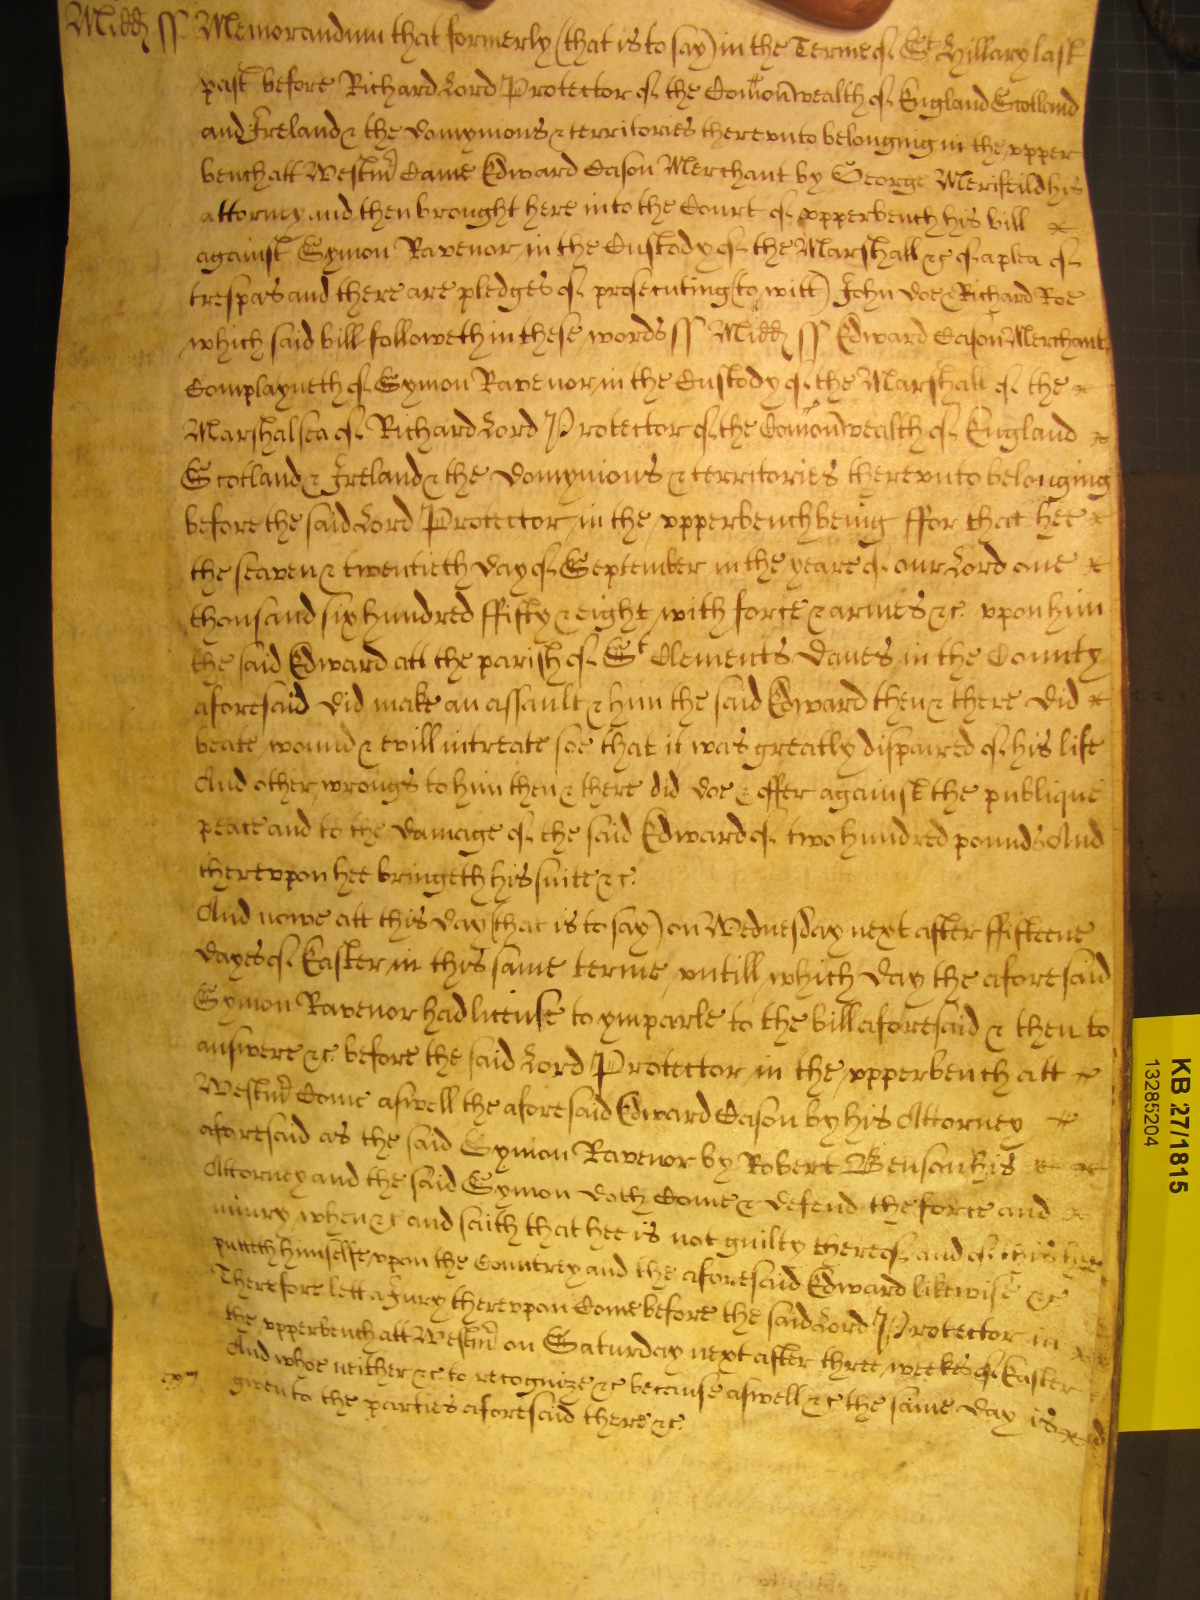 Midd ss Memorandum that formerly (that is to say) in the Terme of St Hillary last
past before Richard Lord Protector of the Comonwealth of England Scotland
and Ireland & the domynions & territories therevnto belonging in the vpper
bench att Westmr Came Edward Cason Merchant by George Merifeild his
attorney and then brought here into the Court of vpperbench his bill
against Symon Ravenor in the Custody of the Marshall &c of a plea of
trespas and there are pledges of prosecuting (to witt) John Doe & Richard Roe
which said bill followeth in these words ss Midd ss Edward Cason Merchant
Complayneth of Symon Ravenor in the Custody of the Marshall of the
Marshalsea of Richard Lord Protector of the Comonwealth of England
Scotland & Ireland & the domynions & territories therevnto belonging
before the said Lord Protector in the vpperbench being ffor that hee
the seaven & twentieth day of September in the yeare of our Lord one
thousand six hundred ffifty & eight with force & armes &c vpon him
the said Edward att the parish of St Clements Danes in the County
aforesaid did make an assault & him the said Edward then & there did
beate wound & evill intreate soe that it was greatly dispaired of his life
And other wrongs to him then & there did doe & offer against the publique
peace and to the damage of the said Edward of two hundred pounds And
therevpon hee bringeth his suite &c
And nowe att this day (that is to say) on Wednesday next after ffifteene
dayes of Easter in this same terme vntill which day the aforesaid
Symon Ravenor had license to ymparle to the bill aforesaid & then to
answere &c before the said Lord Protector in the vpperbench att
Westmr Come aswell the aforesaid Edward Cason by his Attorney
aforesaid as the said Symon Ravenor by Robert Benson his
Attorney and the said Symon doth Come & defend the force and
iniury when &c and saith that hee is not guilty thereof and of this hee
putteth himselfe vpon the Countrey and the aforesaid Edward likewise &c
Therefore lett a Jury therevpon Come before the said Lord Protector in
the vpperbench att Westmr on Saturday next after three weekes of Easter
And whoe neither &c to recognize &c because aswell &c the same day is
given to the parties aforesaid there &c
KB 27/1815
13285204